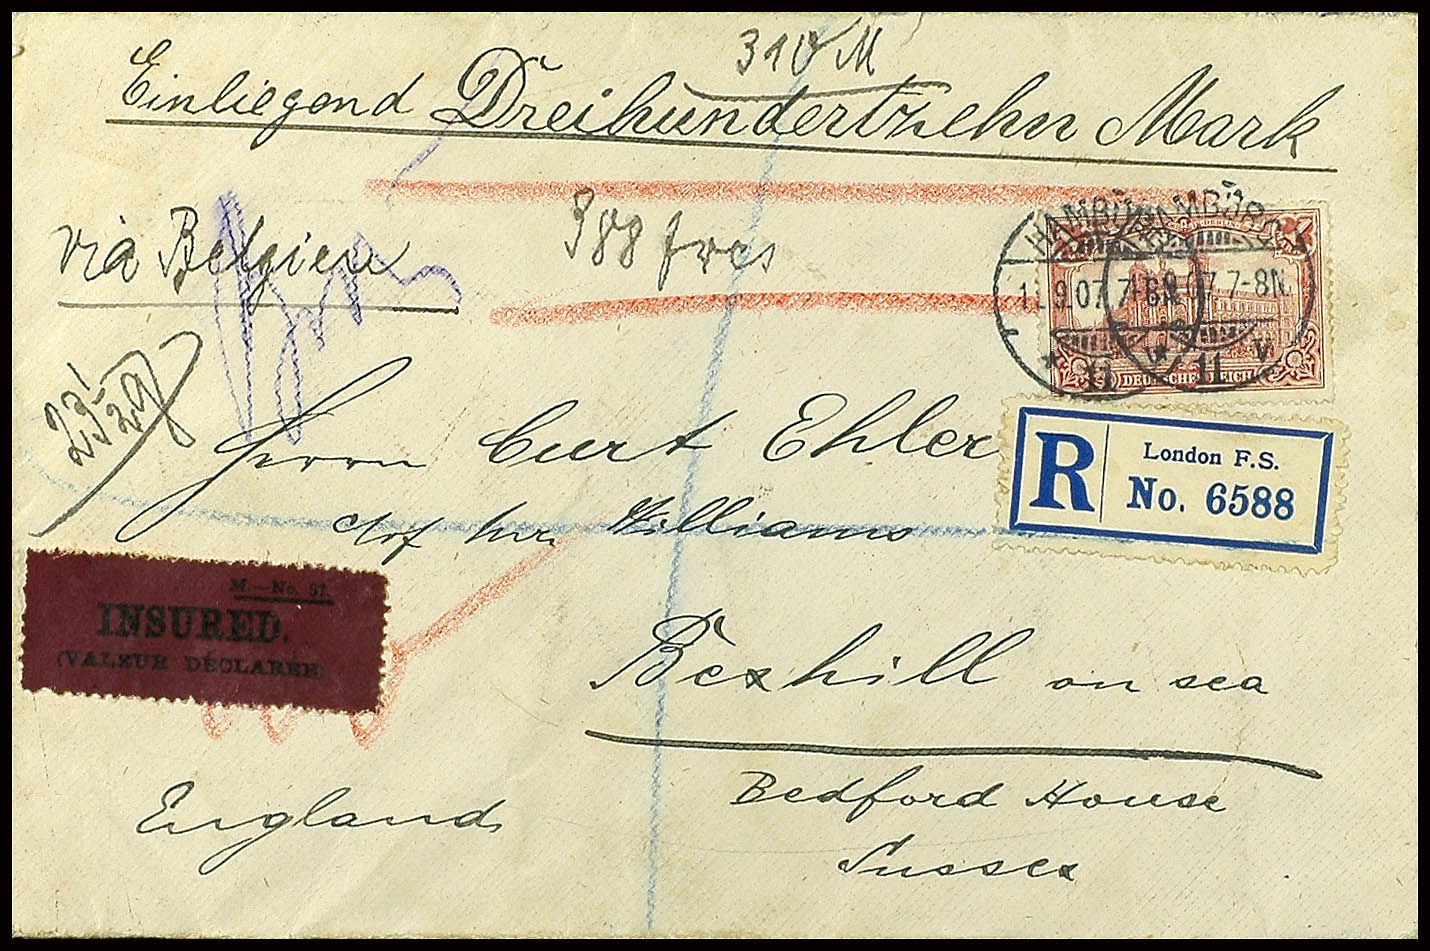 310 M
Einliegend Dreihundertzehn Mark
via Belgien
388 frcs
HAMBURG
HAMBURG
9 07. 7-8N.
9 07. 7-8N.
11
11 V
DEUTSCHES REICH
Herrn Curt Ehler
R
London F.S.
No. 6588
Williams
M.—No. 57.
INSURED.
(VALEUR DÉCLARÉE)
Bexhill on sea
Bedford House
England
Sussex